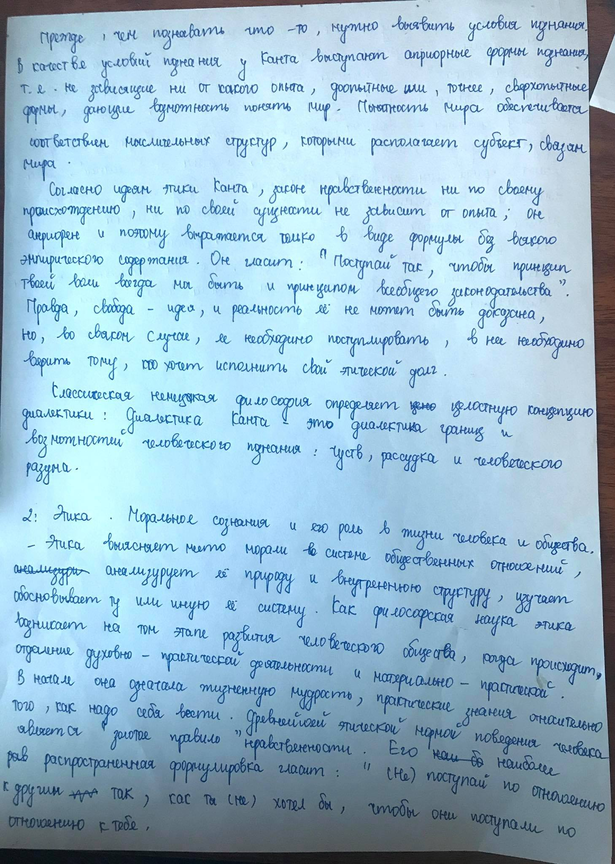 Прежде, чем познавать что-то, нужно выявить условия пднания.
В качестве условий пднания у Канта выступают априорные формы пднания,
т.е. не зависящие ни от какого опыта, доопытные или, точнее, сверхопытные
формы, дающие вдмотность понять мир. Пынатность мира обеспечивается
соответствием мыслительных структур, которыми располагает субъект, связам
мира.
Согласно идеям этики Канта, закон нравственности ни по своему
происхождению, ни по своей сущности не зависит от опыта; он
априорен и поэтому выражается только в виде формулы без всякого
эмпирического содержания. Он гласит: "Поступай так, чтобы принцип
твоей воли всегда мог быть и принципом всеобщего законодательства".
Правда, свобода - идея, и реальность её не может быть доказана,
но, во всяком случае, ее необходимо поступлировать, в нее необходимо
верить тому, кто хочет исполнить свой этической долг.
Классическая немецкая философия определяет целостную концепцию
диалектики: Диалектика Канта - это диалектика границ и
возмотностей человеческого пднания: чуств, рассудка и человеческого
разума.
2: Этика. Моральное сознания и его роль в жизни человека и общества.
- Этика выясняет место морали в системе общественных отношений,
анализурует её природу и внутреннюю структуру, изучает
обосновывает ту или иную её систему. Как философская наука этика
возникает на том этапе развития человеческого общества, когда происходит
отделение духовно - практической деятельности и материально - практической.
В начале она означала жизненную мудрость, практические знания относительно
того, как надо себя вести. Древнейшей этической нормой поведения человека
является "золотое правило" нравственности. Его наиболее
распространенная формулировка гласит: "(не) поступай по отношению
к другим так, как ты (не) хотел бы, чтобы они поступали по
отношению к тебе.